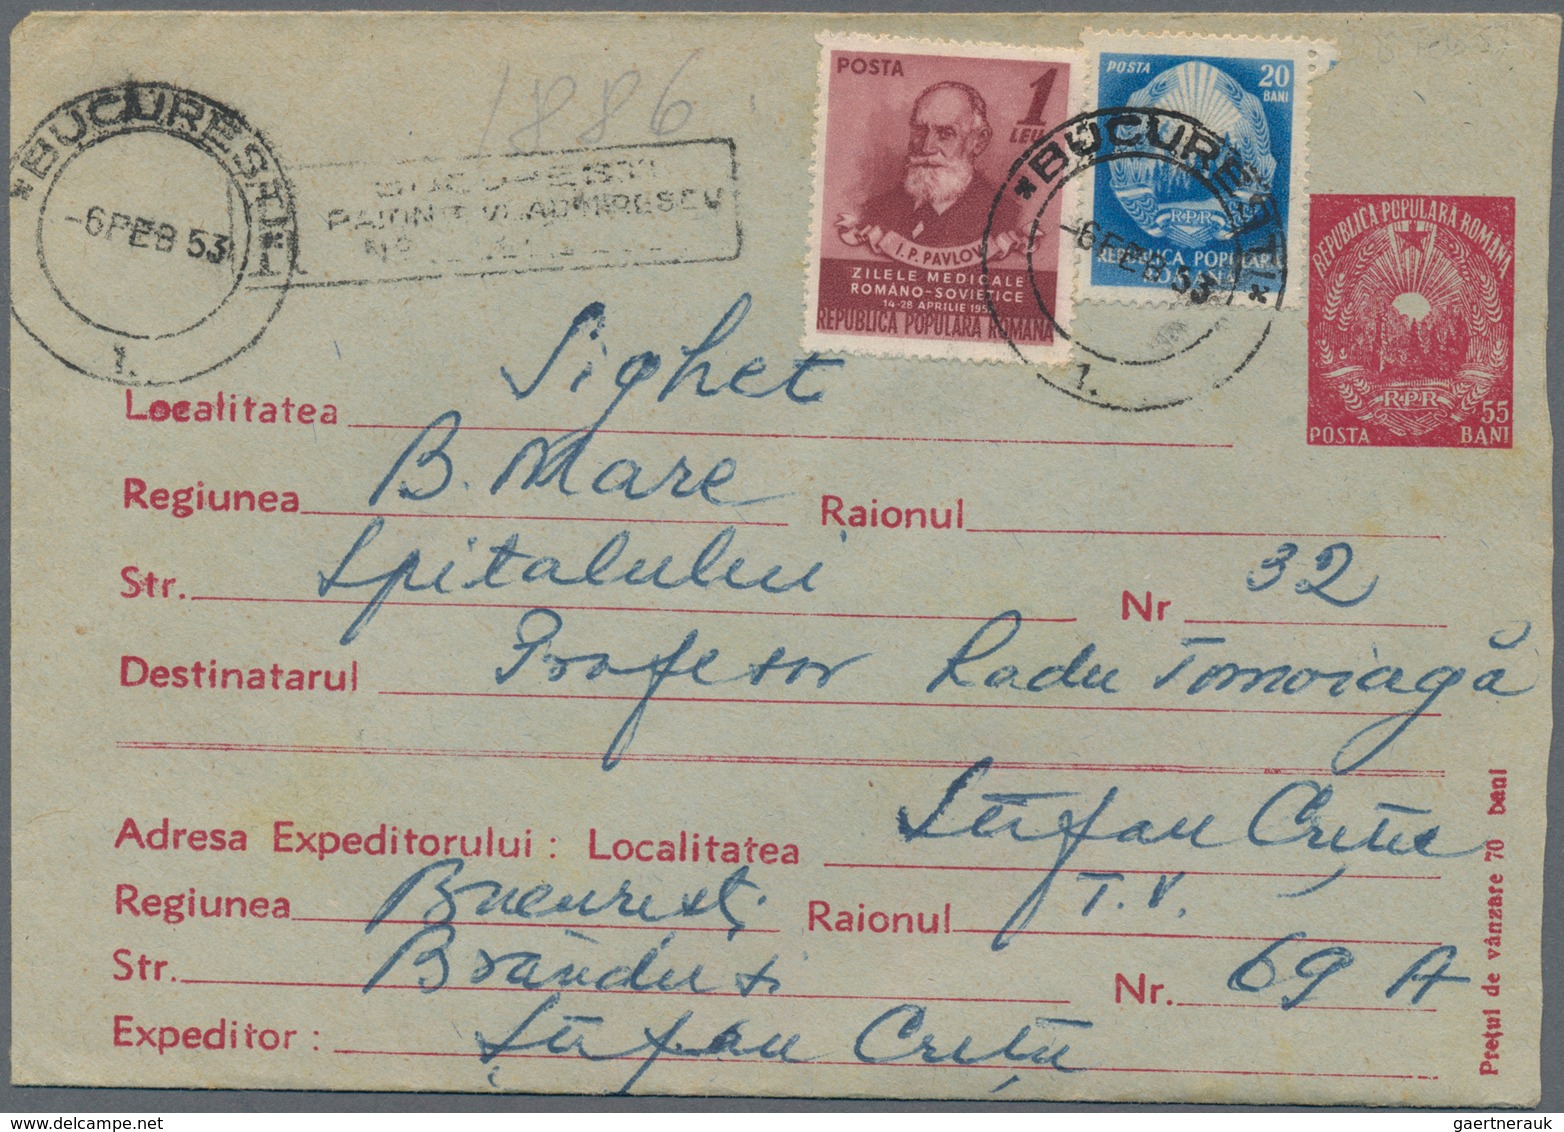 1886
*BUCUREȘTI*
-6 FEB 53
1.
BUCUREȘTI
RAION T. VLADIMIRESCU
POSTA
1
LEU
I. P. PAVLOV
ZILELE MEDICALE
ROMÂNO-SOVIETICE
14-28 APRILIE
REPUBLICA POPULARA ROMANA
POSTA 20
BANI
RPR
REPUBLICA POPULARA
ROMANA
*BUCUREȘTI*
-6 FEB 53
1.
REPUBLICA POPULARĂ ROMÂNĂ
RPR
55
POSTA BANI
Localitatea Sighet
Regiunea B. Mare Raionul
Str. Spitalului Nr 32
Destinatarul Profesor Radu Tomoiagă
Ștefan Crețu
Adresa Expeditorului : Localitatea
Regiunea București Raionul T.V.
Str. Brânduși Nr. 69 A
Expeditor : Ștefan Crețu
Prețul de vânzare 70 bani
gaertnerauk